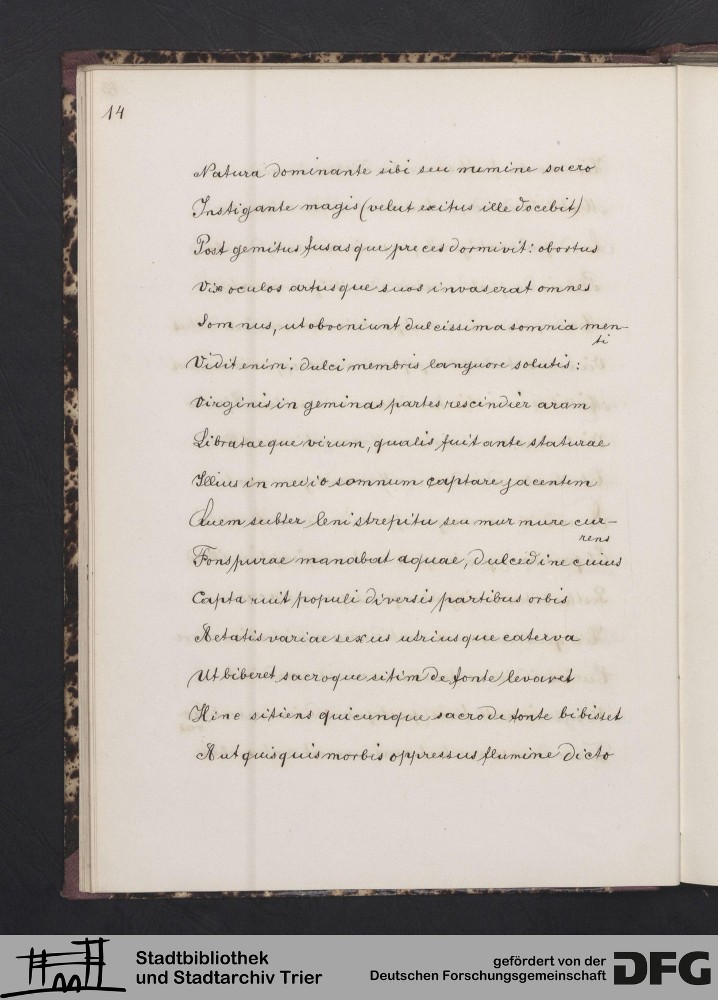 14
Natura dominante sibi seu numine sacro
Instigante magis (velut exitus ille docebit)
Post gemitus fusasque preces dormivit: obortus
Vix oculos artusque suos invaserat omnes
Somnus, ut obveniunt dulcissima somnia men-
ti
Vidit enim: dulci membris languore solutis:
Virginis in geminas partes rescindier aram
Librataeque virum, qualis fuit ante staturae
Illius in medio somnum captare jacentem
Quem subter leni strepitu seu murmure cur-
rens
Fons purae manabat aquae, dulcedine cuius
Capta ruit populi diversis partibus orbis
Aetatis variae sexus utriusque caterva
Ut biberet sacroque sitim de fonte levaret
Hinc sitiens quicunque sacro de fonte bibisset
Aut quisquis morbis oppressus flumine dicto
Stadtbibliothek
und Stadtarchiv Trier
gefördert von der
Deutschen Forschungsgemeinschaft
DFG